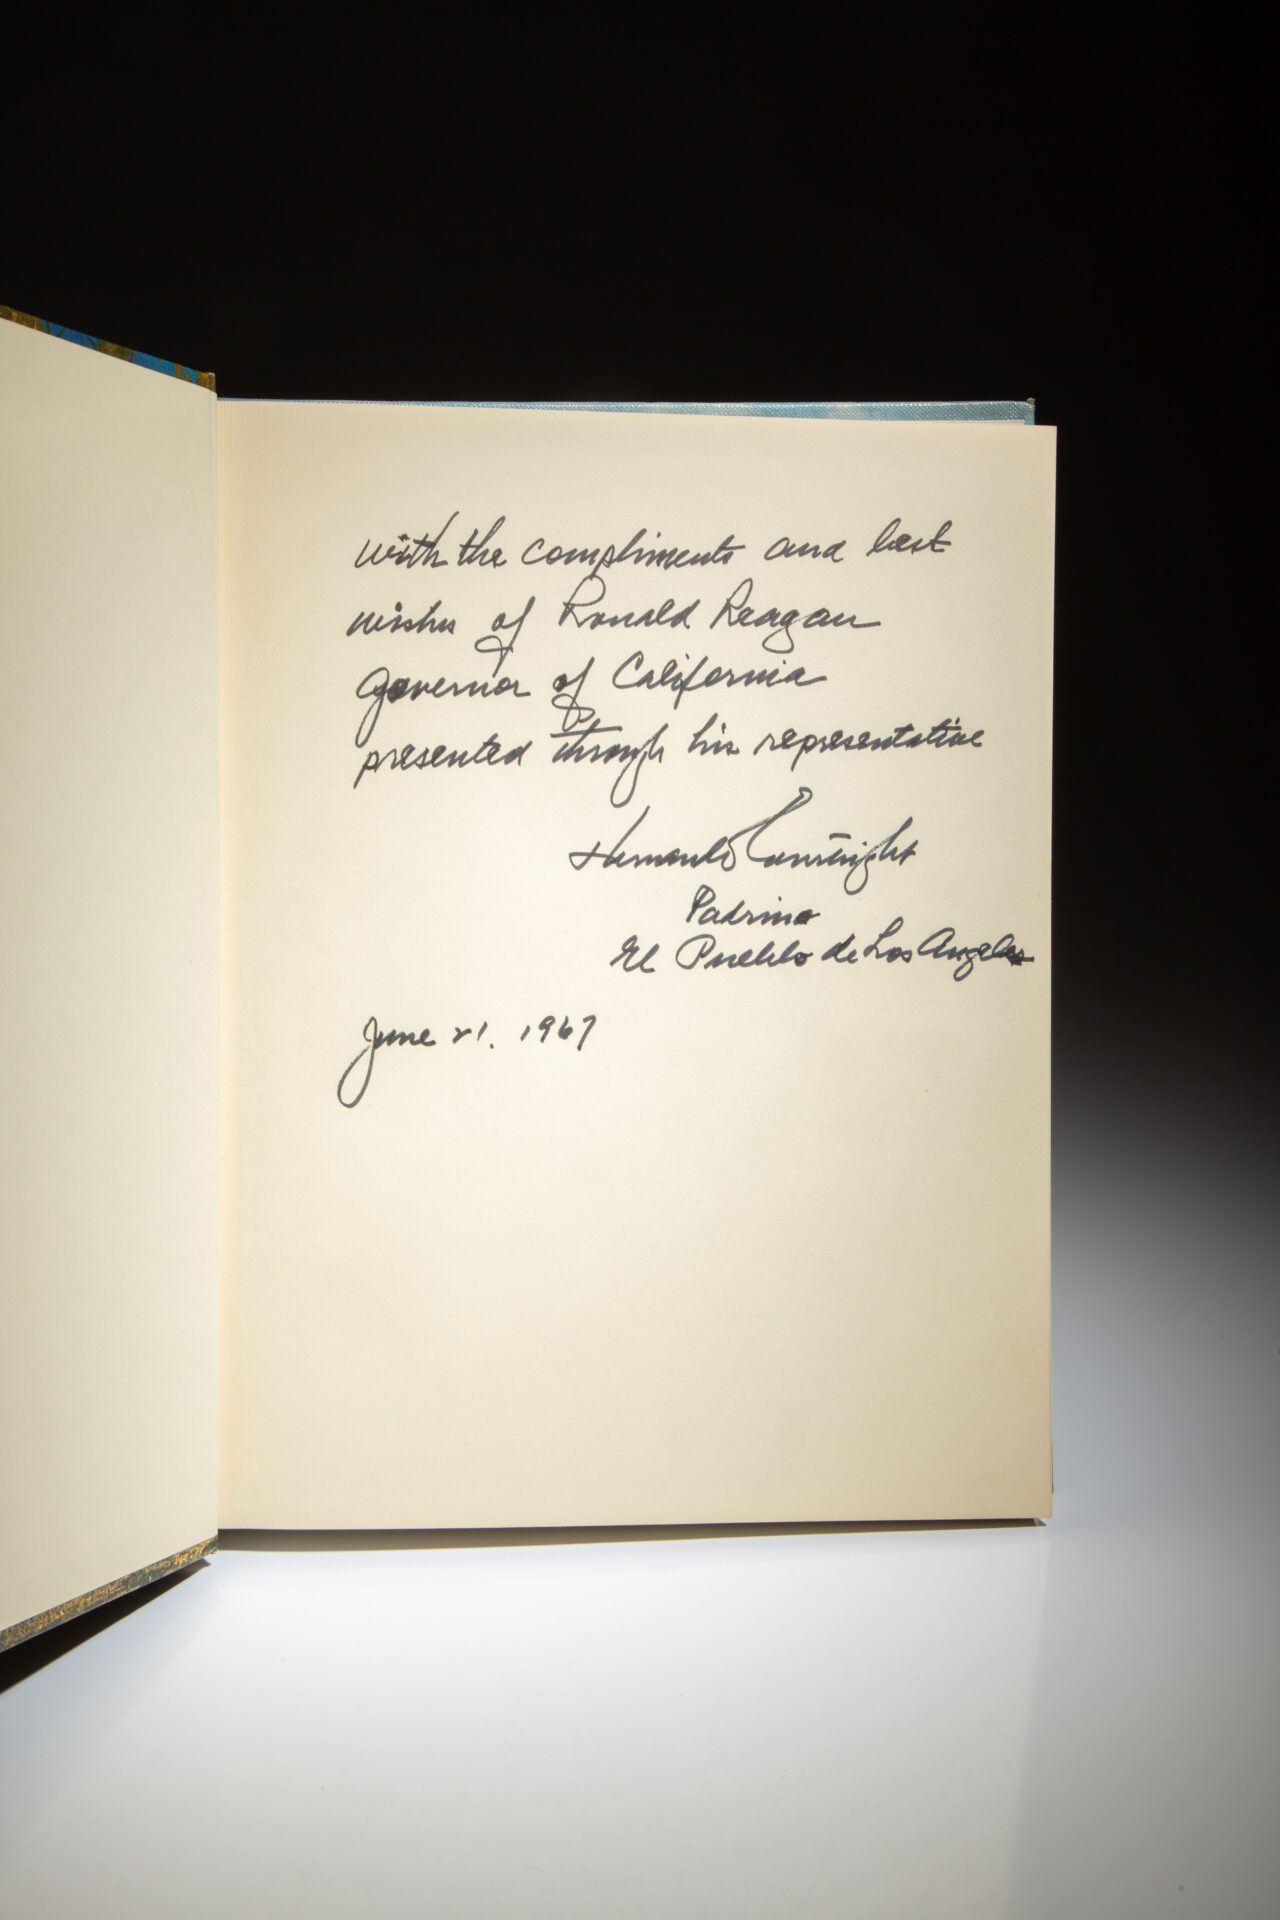 with the compliments and best
wishes of Ronald Reagan
Governor of California
presented through his representative
Hernando Courtright
Padrino
El Pueblo de Los Angeles
June 21, 1967